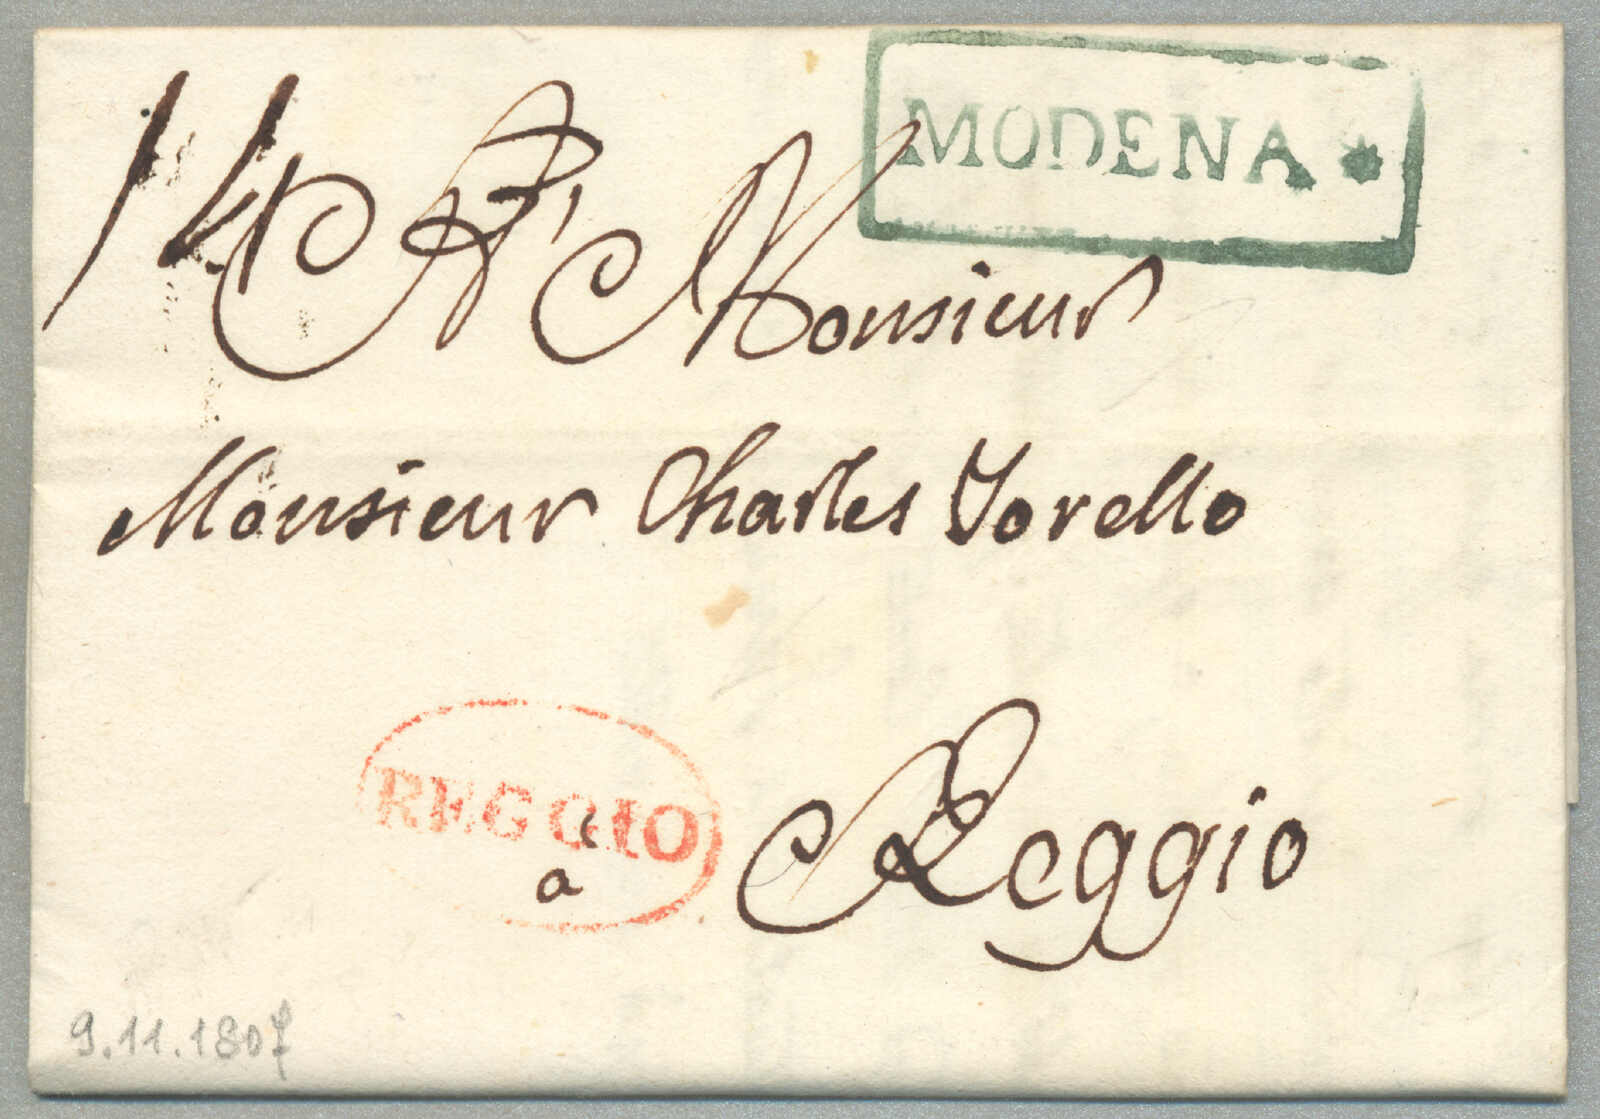 MODENA *
Monsieur
Monsieur Charles Torello
REGGIO
à Reggio
9.11.1807